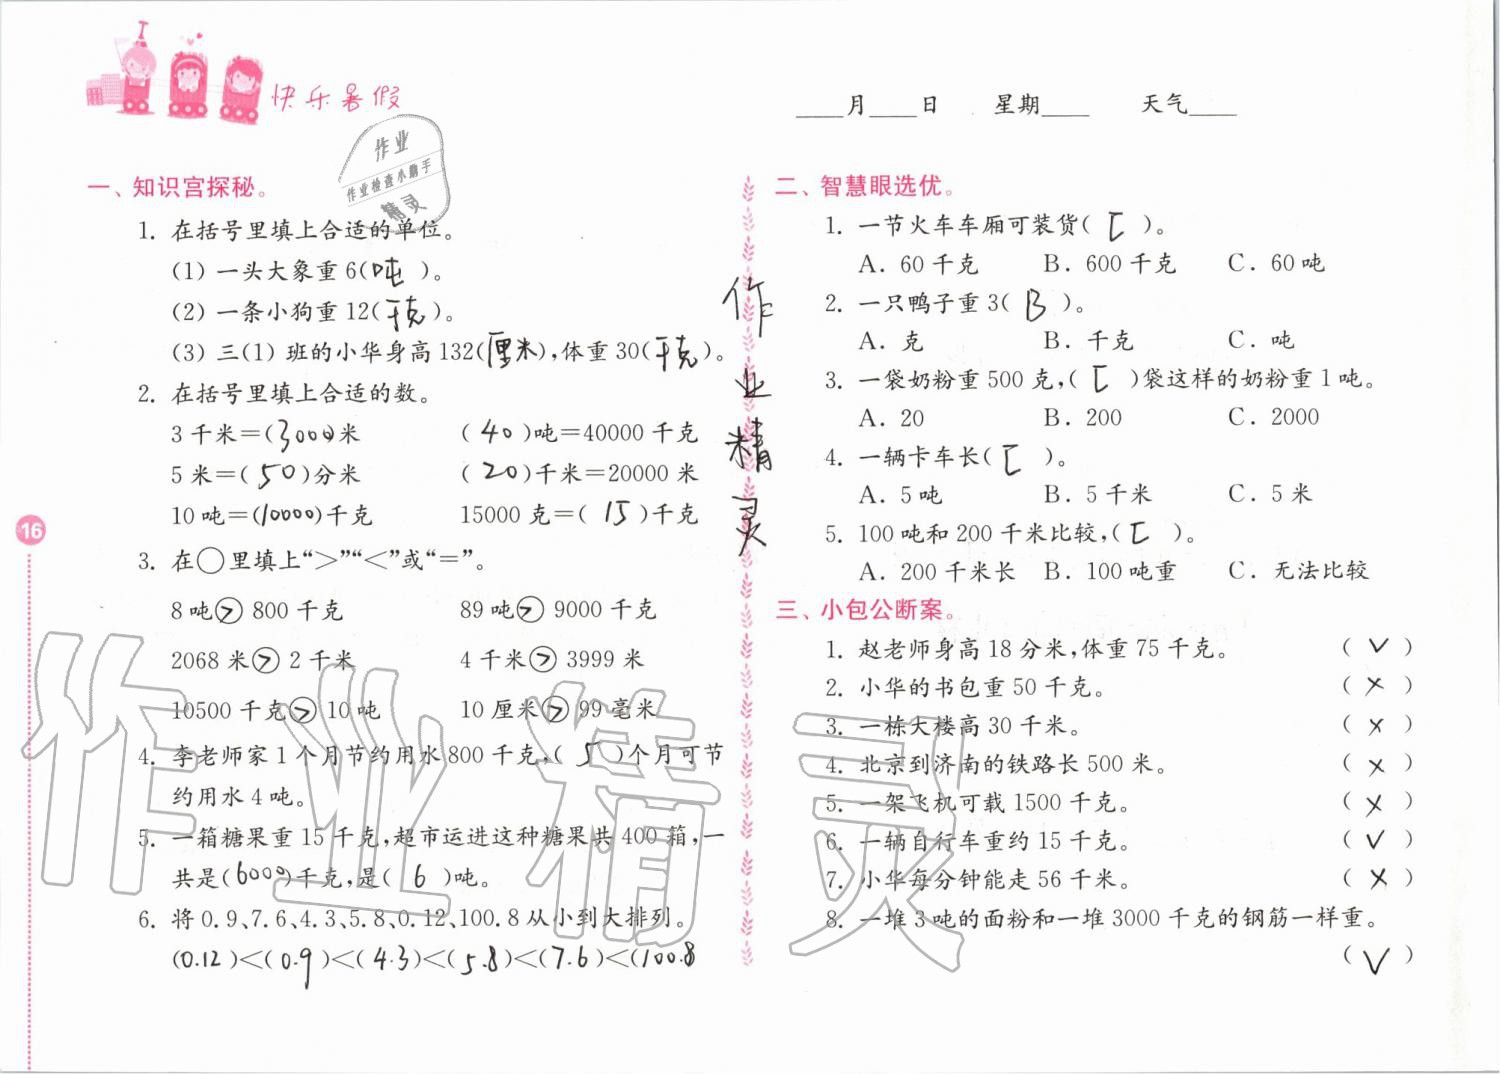 快乐暑假
____月____日 星期____ 天气____
作业
作业检查小助手
精灵
一、知识宫探秘。
1. 在括号里填上合适的单位。
(1) 一头大象重 6(吨)。
(2) 一条小狗重 12(千克)。
(3) 三(1) 班的小华身高 132(厘米),体重 30(千克)。
2. 在括号里填上合适的数。
3 千米=(3000)米 (40)吨=40000 千克
5 米=(50)分米 (20)千米=20000 米
10 吨=(10000)千克 15000 克=(15)千克
3. 在○里填上“>”“<”或“=”。
8 吨>800 千克 89 吨>9000 千克
2068 米>2 千米 4 千米>3999 米
10500 千克>10 吨 10 厘米>99 毫米
4. 李老师家 1 个月节约用水 800 千克,(5)个月可节
约用水 4 吨。
5. 一箱糖果重 15 千克,超市运进这种糖果共 400 箱,一
共是(6000)千克,是(6)吨。
6. 将 0.9、7.6、4.3、5.8、0.12、100.8 从小到大排列。
(0.12)<(0.9)<(4.3)<(5.8)<(7.6)<(100.8
16
作业精灵
作业精灵
二、智慧眼选优。
1. 一节火车车厢可装货(C)。
A. 60 千克 B. 600 千克 C. 60 吨
2. 一只鸭子重 3(B)。
A. 克 B. 千克 C. 吨
3. 一袋奶粉重 500 克,(C)袋这样的奶粉重 1 吨。
A. 20 B. 200 C. 2000
4. 一辆卡车长(C)。
A. 5 吨 B. 5 千米 C. 5 米
5. 100 吨和 200 千米比较,(C)。
A. 200 千米长 B. 100 吨重 C. 无法比较
三、小包公断案。
1. 赵老师身高 18 分米,体重 75 千克。 (√)
2. 小华的书包重 50 千克。 (×)
3. 一栋大楼高 30 千米。 (×)
4. 北京到济南的铁路长 500 米。 (×)
5. 一架飞机可载 1500 千克。 (×)
6. 一辆自行车重约 15 千克。 (√)
7. 小华每分钟能走 56 千米。 (×)
8. 一堆 3 吨的面粉和一堆 3000 千克的钢筋一样重。
(√)